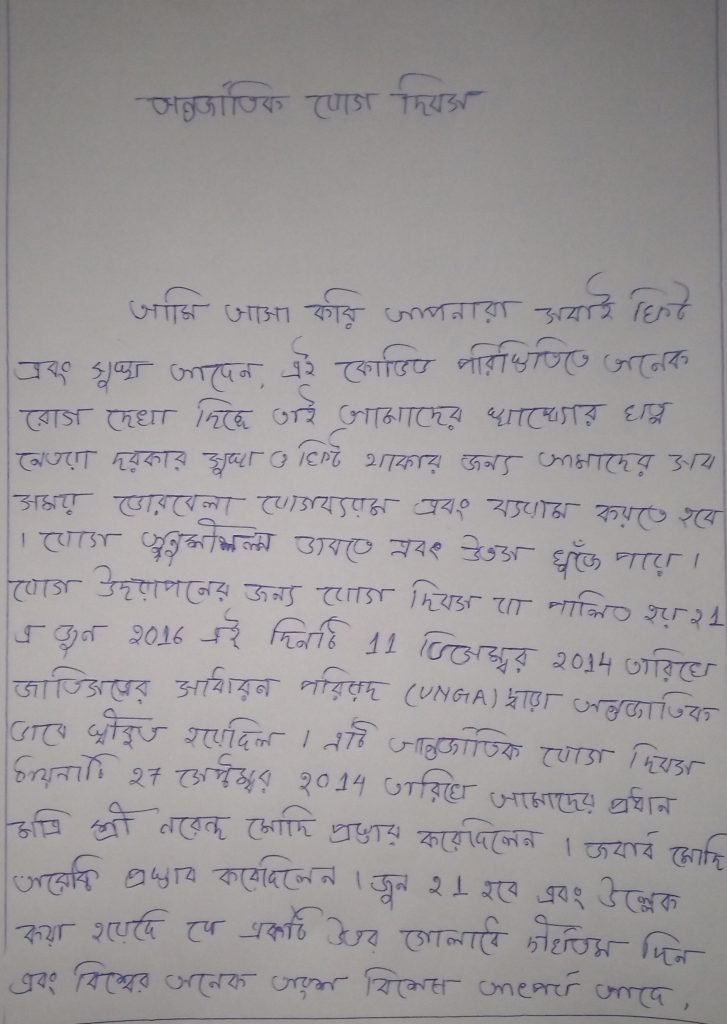 অন্তর্জাতিক যোগ দিবস
আমি আসা করি আপনারা সবাই ফিট
এবং সুস্থ আছেন, এই কোভিড পরিস্থিতিতে অনেক
রোগ দেখা দিছে তাই আমাদের স্বাস্থ্যের যত্ন
নেওয়া দরকার সুস্থ ও ফিট থাকার জন্য আমাদের সব
সময় ভোরবেলা যোগব্যয়াম এবং ব্যয়াম করতে হবে
। যোগ ভাবতে এবং উৎস খুঁজে পারে।
যোগ উদযাপনের জন্য যোগ দিবস যা পালিত হয় ২১
এ জুন ২০১৬ এই দিনটি 11 ডিসেম্বর ২০14 তারিখে
জাতিসঙ্ঘের সাধারন পরিষদ (UNGA) দ্বারা অন্তর্জাতিক
ভাবে স্বীকৃত হয়েছিল। এটি আন্তর্জাতিক যোগ দিবস
২7 সেপ্টেম্বর ২০14 তারিখে আমাদের প্রধান
মন্ত্রি শ্রী নরেন্দ্র মোদি প্রস্তাব করেছিলেন। জবাব মোদি
প্রস্তাব করেছিলেন। জুন ২1 হবে এবং উল্লেক
করা হয়েছি যে একটি উত্তর গোলার্ধে দীর্ঘতম দিন
এবং বিশ্বের অনেক অংশ বিশেষ তাৎপর্য আছে,